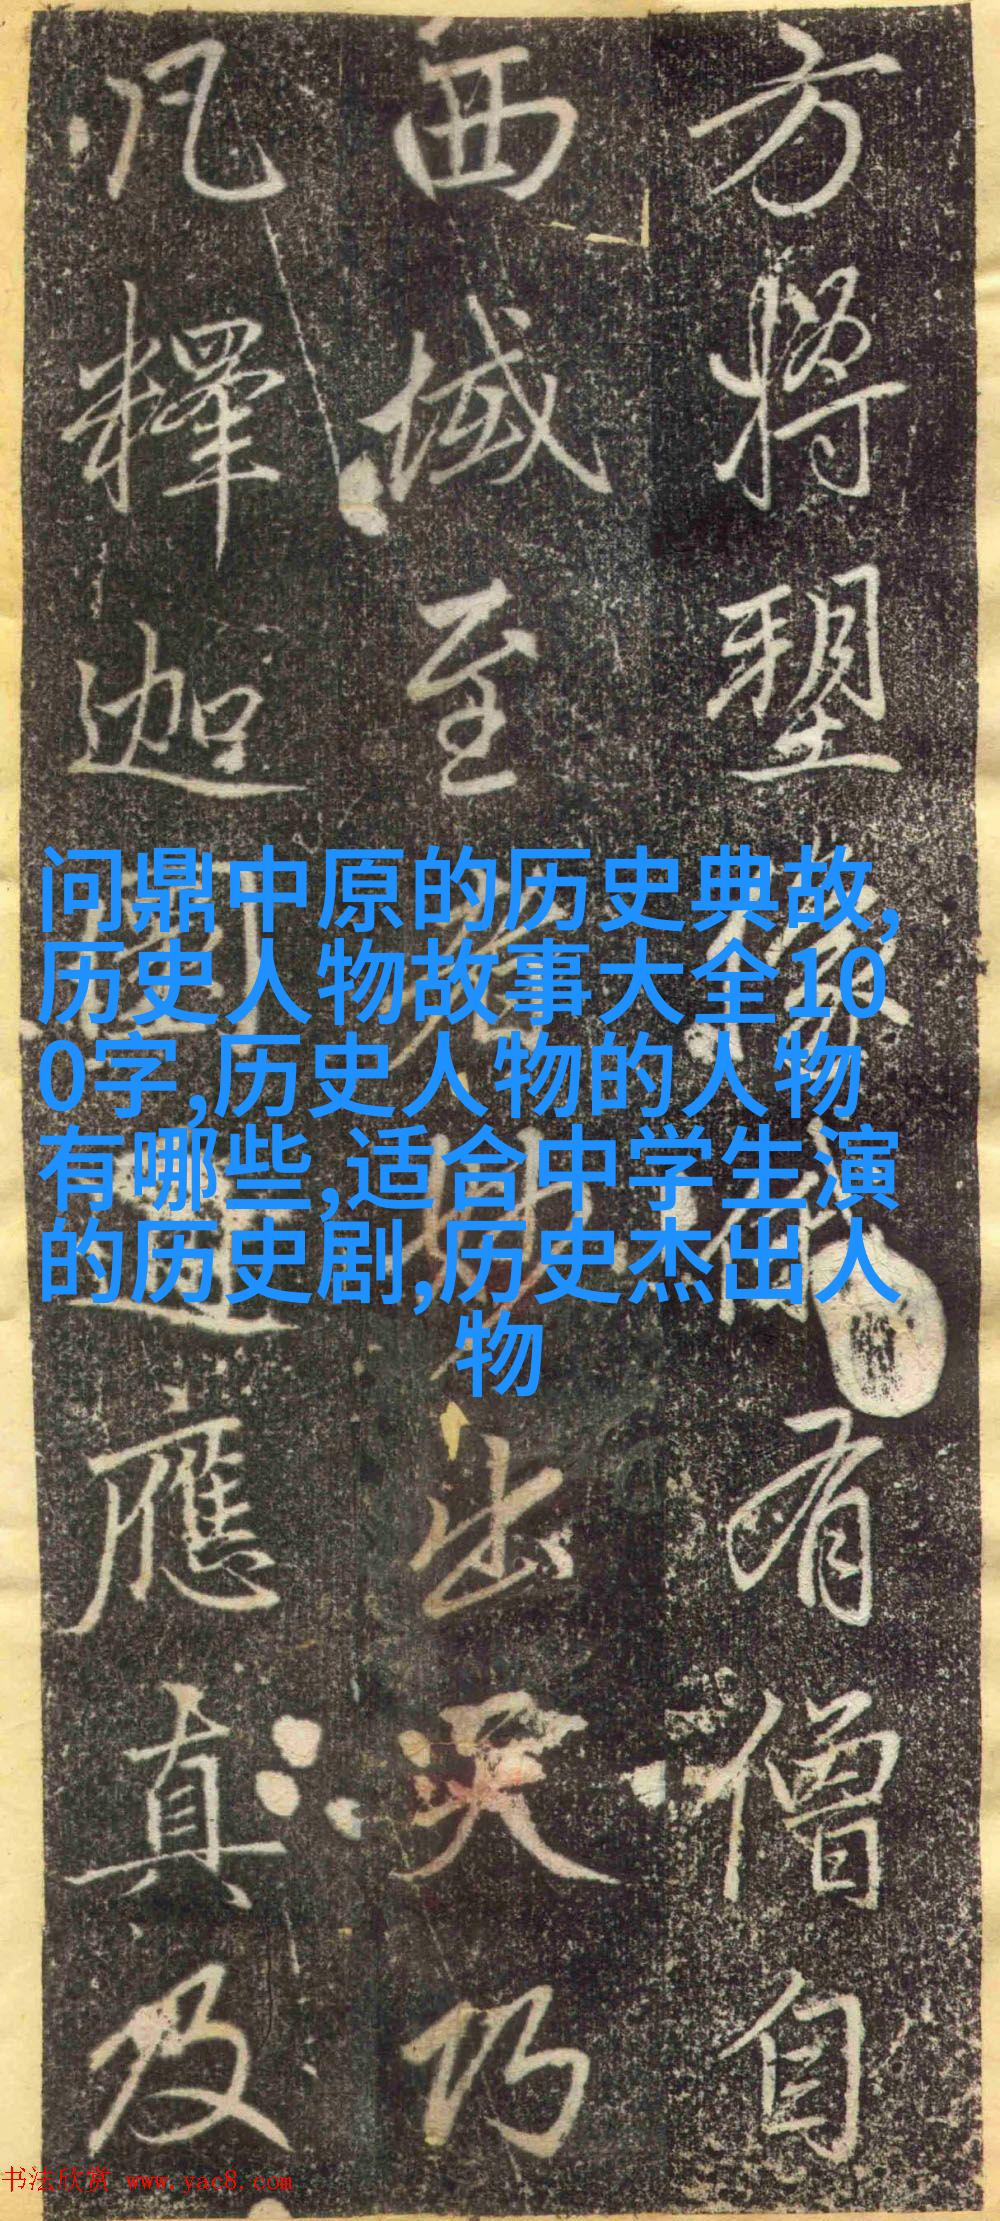 方將塑像有僧自
西域至妙出天巧
凡釋迦圓通應真及
问鼎中原的历史典故,
历史人物故事大全10
0字,历史人物的人物
有哪些,适合中学生演
的历史剧,历史杰出人
物
书法欣赏 www.yac8.com